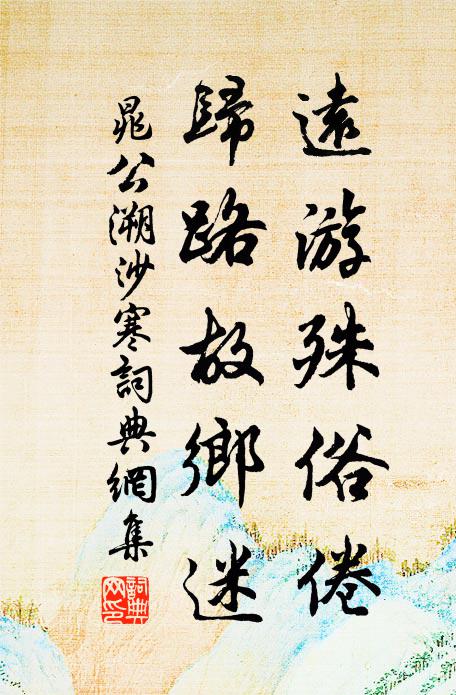 遠游殊俗倦
歸路故鄉迷
晁公溯沙寒詞典網集
詞典网印